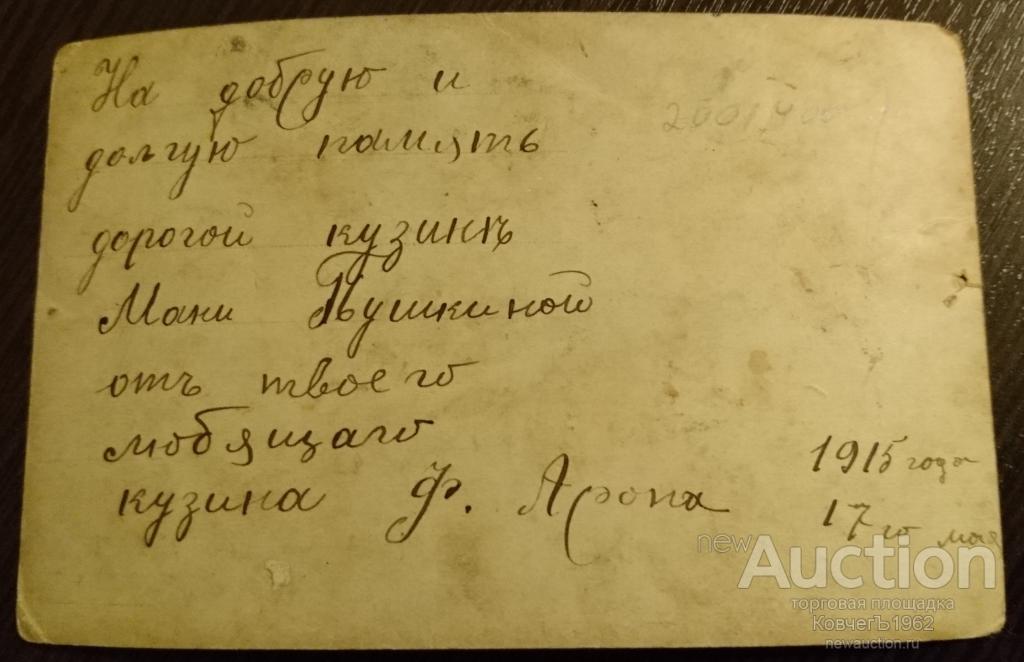 На добрую и
долгую память
дорогой кузинѣ
Мани Пушкиной
отъ твоего
любящаго
кузина Ф. Арона
1915 года
17 го мая
newAuction
торговая площадка
КовчегЪ1962
newauction.ru